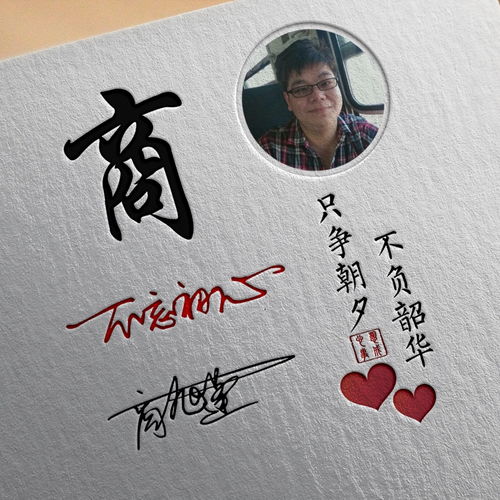 商
不忘初心
只争朝夕
不负韶华